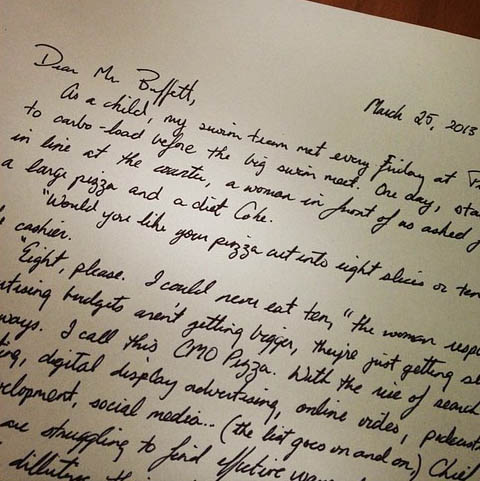 March 25, 2013
Dear Mr. Buffett,
As a child, my swim team met every Friday at
to carbo-load before the big swim meet. One day,
in line at the counter, a woman in front of us asked
a large pizza and a diet Coke.
"Would you like your pizza cut into eight slices or
cashier.
"Eight, please. I could never eat ten," the woman
budgets aren't getting bigger, they're just getting
ways. I call this CMO Pizza. With the rise of search
digital display advertising, online video,
social media... (the list goes on and on,) Chief
are struggling to find effective